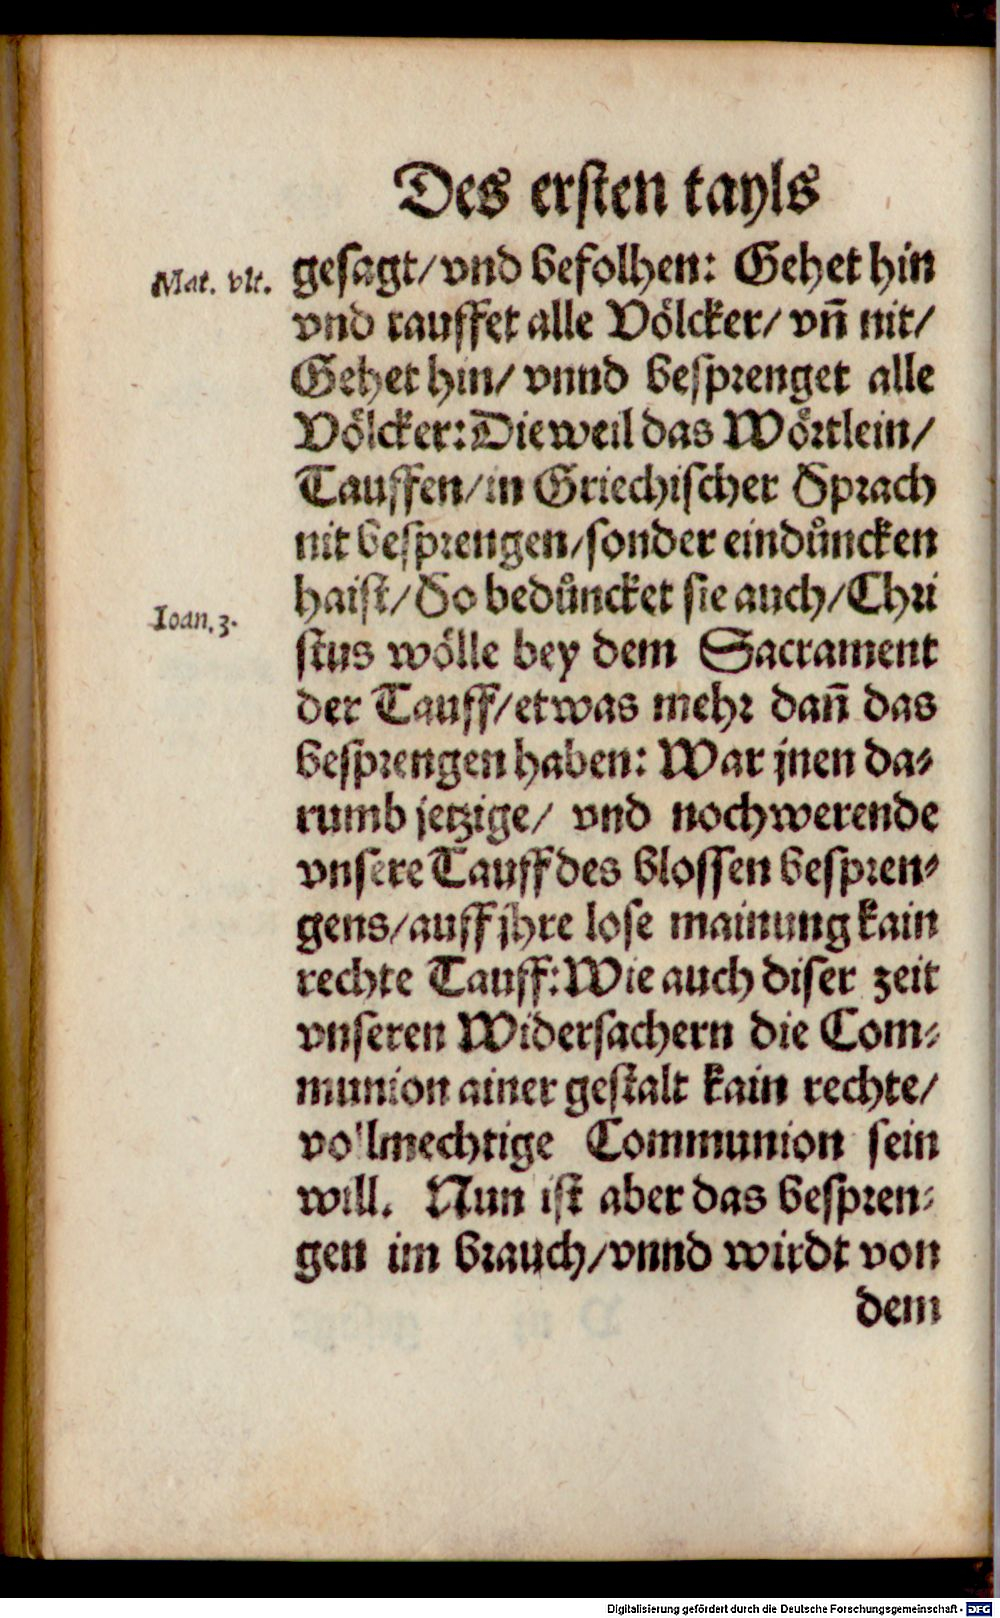 Des ersten tayls
Mat. vlt.
gesagt/ vnd befolhen: Gehet hin
vnd tauffet alle Völcker/ vñ nit/
Gehet hin/ vnnd besprenget alle
Völcker: Dieweil das Wörtlein/
Tauffen/ in Griechischer Sprach
nit besprengen/ sonder eindůncken
haist/ So bedůncket sie auch/ Chri
Ioan. 3.
stus wölle bey dem Sacrament
der Tauff/ etwas mehr dañ das
besprengen haben: War jnen da-
rumb jetzige/ vnd nochwerende
vnsere Tauff des blossen bespren-
gens/ auff jhre lose mainung kain
rechte Tauff: Wie auch diser zeit
vnseren Widersachern die Com-
munion ainer gestalt kain rechte/
vollmechtige Communion sein
will. Nun ist aber das bespren-
gen im brauch/ vnnd wirdt von
dem
Digitalisierung gefördert durch die Deutsche Forschungsgemeinschaft - DFG